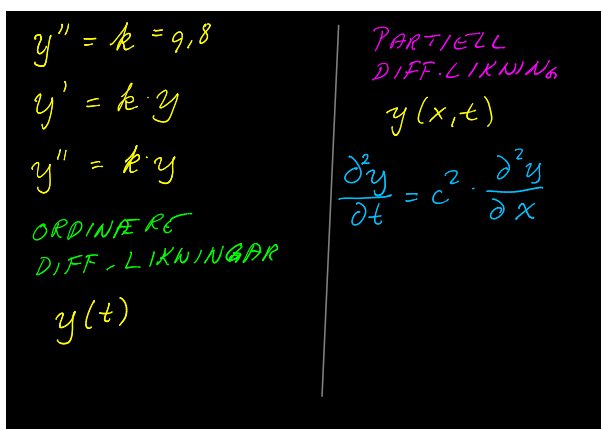 y'' = k = 9,8
y' = k · y
y'' = k · y
ORDINÆRE
DIFF. LIKNINGAR
y(t)
PARTIELL
DIFF. LIKNING
y(x,t)
∂²y/∂t = c² · ∂²y/∂x